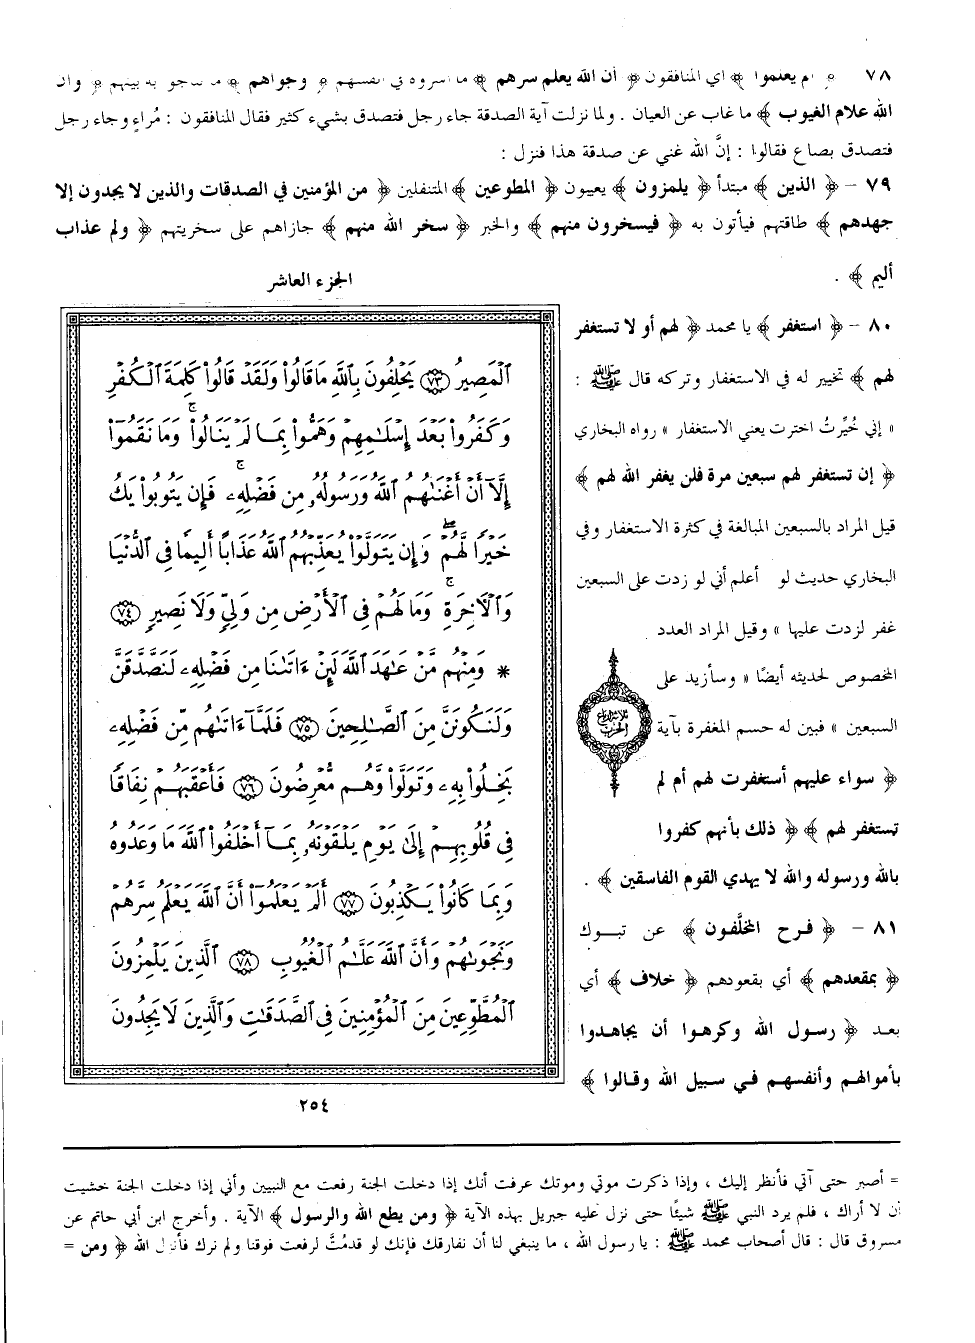 ٧٨ ﴿ ألم يعلموا ﴾ أي المنافقون ﴿ أن الله يعلم سرهم ﴾ ما أسروه في أنفسهم ﴿ ونجواهم ﴾ ما تناجوا به بينهم ﴿ وأن
الله علام الغيوب ﴾ ما غاب عن العيان . ولما نزلت آية الصدقة جاء رجل فتصدق بشيء كثير فقال المنافقون : مُراءٍ وجاء رجل
فتصدق بصاع فقالوا : إنَّ الله غني عن صدقة هذا فنزل :
٧٩ – ﴿ الذين ﴾ مبتدأ ﴿ يلمزون ﴾ يعيبون ﴿ المطوعين ﴾ المتنفلين ﴿ من المؤمنين في الصدقات والذين لا يجدون إلا
جهدهم ﴾ طاقتهم فيأتون به ﴿ فيسخرون منهم ﴾ والخبر ﴿ سخر الله منهم ﴾ جازاهم على سخريتهم ﴿ ولهم عذاب
أليم ﴾ .
الجزء العاشر
٨٠ – ﴿ استغفر ﴾ يا محمد ﴿ لهم أو لا تستغفر
لهم ﴾ تخيير له في الاستغفار وتركه قال ﷺ :
« إني خُيِّرتُ اخترت يعني الاستغفار » رواه البخاري
﴿ إن تستغفر لهم سبعين مرة فلن يغفر الله لهم ﴾
قيل المراد بالسبعين المبالغة في كثرة الاستغفار وفي
البخاري حديث لو أعلم أني لو زدت على السبعين
غفر لزدت عليها » وقيل المراد العدد
المخصوص لحديثه أيضًا « وسأزيد على
السبعين » فبين له حسم المغفرة بآية
﴿ سواء عليهم أستغفرت لهم أم لم
تستغفر لهم ﴾ ﴿ ذلك بأنهم كفروا
بالله ورسوله والله لا يهدي القوم الفاسقين ﴾ .
٨١ – ﴿ فرح المخلَّفون ﴾ عن تبوك
﴿ بمقعدهم ﴾ أي بقعودهم ﴿ خلاف ﴾ أي
بعد ﴿ رسول الله وكرهوا أن يجاهدوا
بأموالهم وأنفسهم في سبيل الله وقالوا ﴾
ثلاثة أرباع
الحزب
ٱلْمَصِيرُ ٧٣ يَحْلِفُونَ بِٱللَّهِ مَا قَالُوا۟ وَلَقَدْ قَالُوا۟ كَلِمَةَ ٱلْكُفْرِ
وَكَفَرُوا۟ بَعْدَ إِسْلَٰمِهِمْ وَهَمُّوا۟ بِمَا لَمْ يَنَالُوا۟ ۚ وَمَا نَقَمُوٓا۟
إِلَّآ أَنْ أَغْنَىٰهُمُ ٱللَّهُ وَرَسُولُهُۥ مِن فَضْلِهِۦ ۚ فَإِن يَتُوبُوا۟ يَكُ
خَيْرًا لَّهُمْ ۖ وَإِن يَتَوَلَّوْا۟ يُعَذِّبْهُمُ ٱللَّهُ عَذَابًا أَلِيمًا فِى ٱلدُّنْيَا
وَٱلْـَٔاخِرَةِ ۚ وَمَا لَهُمْ فِى ٱلْأَرْضِ مِن وَلِىٍّ وَلَا نَصِيرٍ ٧٤
* وَمِنْهُم مَّنْ عَٰهَدَ ٱللَّهَ لَئِنْ ءَاتَىٰنَا مِن فَضْلِهِۦ لَنَصَّدَّقَنَّ
وَلَنَكُونَنَّ مِنَ ٱلصَّٰلِحِينَ ٧٥ فَلَمَّآ ءَاتَىٰهُم مِّن فَضْلِهِۦ
بَخِلُوا۟ بِهِۦ وَتَوَلَّوا۟ وَّهُم مُّعْرِضُونَ ٧٦ فَأَعْقَبَهُمْ نِفَاقًا
فِى قُلُوبِهِمْ إِلَىٰ يَوْمِ يَلْقَوْنَهُۥ بِمَآ أَخْلَفُوا۟ ٱللَّهَ مَا وَعَدُوهُ
وَبِمَا كَانُوا۟ يَكْذِبُونَ ٧٧ أَلَمْ يَعْلَمُوٓا۟ أَنَّ ٱللَّهَ يَعْلَمُ سِرَّهُمْ
وَنَجْوَىٰهُمْ وَأَنَّ ٱللَّهَ عَلَّٰمُ ٱلْغُيُوبِ ٧٨ ٱلَّذِينَ يَلْمِزُونَ
ٱلْمُطَّوِّعِينَ مِنَ ٱلْمُؤْمِنِينَ فِى ٱلصَّدَقَٰتِ وَٱلَّذِينَ لَا يَجِدُونَ
٢٥٤
= أصبر حتى آتي فأنظر إليك ، وإذا ذكرت موتي وموتك عرفت أنك إذا دخلت الجنة رفعت مع النبيين وأني إذا دخلت الجنة خشيت
أن لا أراك ، فلم يرد النبي ﷺ شيئًا حتى نزل عليه جبريل بهذه الآية ﴿ ومن يطع الله والرسول ﴾ الآية . وأخرج ابن أبي حاتم عن
مسروق قال : قال أصحاب محمد ﷺ : يا رسول الله ، ما ينبغي لنا أن نفارقك فإنك لو قدمْتَ لرفعت فوقنا ولم نرك فأنزل الله ﴿ ومن =